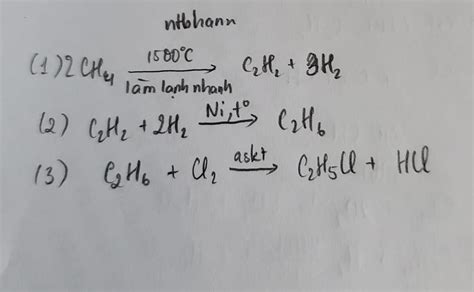 ntbhann
(1) 2CH₄ 1500°C làm lạnh nhanh → C₂H₂ + 3H₂
(2) C₂H₂ + 2H₂ Ni,t° → C₂H₆
(3) C₂H₆ + Cl₂ askt → C₂H₅Cl + HCl